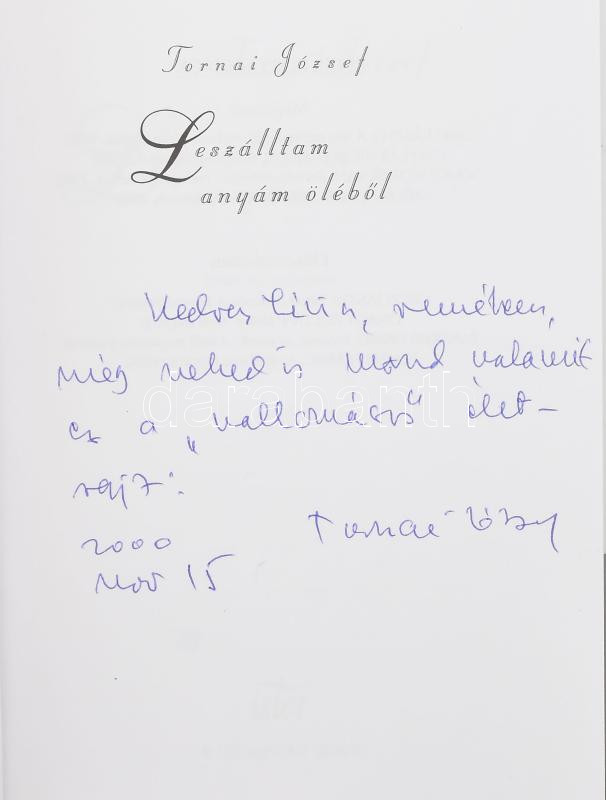 Tornai József
Leszálltam
anyám öléből
Kedves Lívia, remélem,
még neked is mond valamit
ez a „vallomásos" élet-
rajz:
2000 Tornai József
nov 15
darabanth